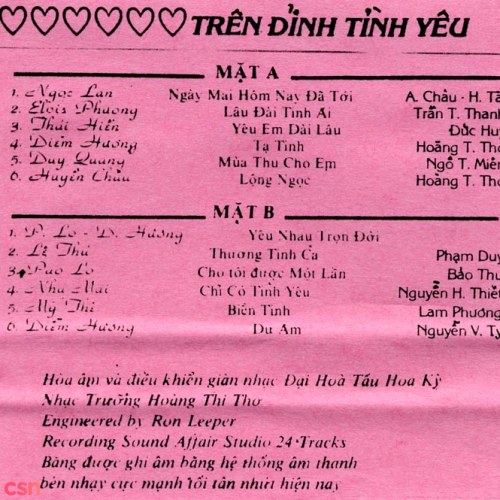 TRÊN ĐỈNH TÌNH YÊU
MẶT A
1. Ngọc Lan Ngày Mai Hôm Nay Đã Tới A. Châu - H. Tâ
2. Elvis Phương Lâu Đài Tình Ái Trần T. Thanh
3. Thái Hiền Yêu Em Dài Lâu Đức Hu
4. Diễm Hương Tạ Tình Hoàng T. Thơ
5. Duy Quang Mùa Thu Cho Em Ngô T. Miên
6. Huyền Châu Lộng Ngọc Hoàng T. Thơ
MẶT B
1. P. Lo - D. Hương Yêu Nhau Trọn Đời
2. Lệ Thu Thương Tình Ca Phạm Duy
3. Pao Lo Cho tôi được Một Lần Bảo Thu
4. Như Mai Chỉ Có Tình Yêu Nguyễn H. Thiế
5. Mỹ Thi Biển Tình Lam Phương
6 Diễm Hương Dư Âm Nguyễn V. Tý
Hòa âm và điều khiển giàn nhạc Đại Hoà Tấu Hoa Kỳ
Nhạc Trưởng Hoàng Thi Thơ
Engineered by Ron Leeper
Recording Sound Affair Studio 24 Tracks
Băng được ghi âm bằng hệ thống âm thanh
bén nhạy cực mạnh tối tân nhứt hiện nay
csn